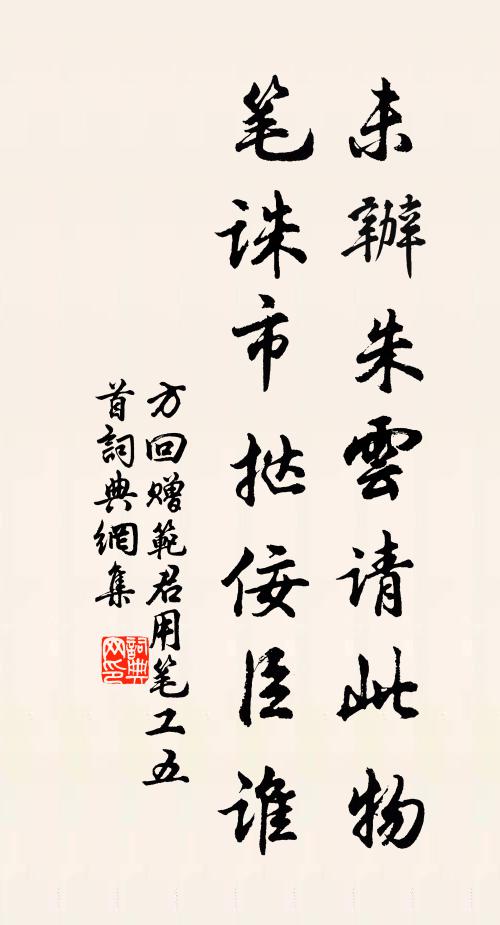 未辦朱雲请此物
笔诛市挞佞臣谁
方回赠範君用笔工五
首詞典網集
詞典网印